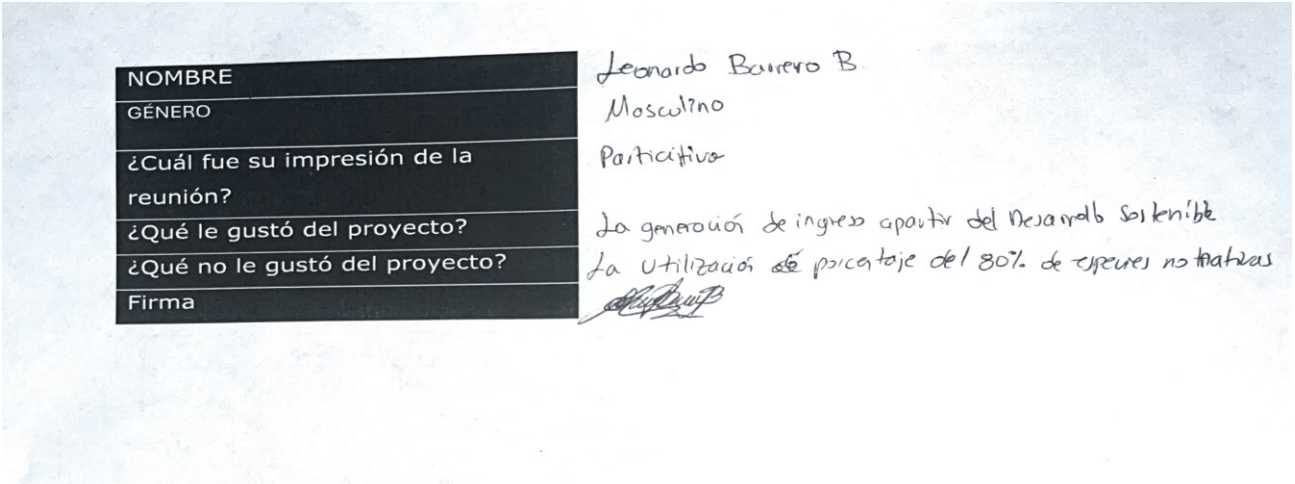 NOMBRE Leonardo Barrero B.
GÉNERO Masculino
¿Cuál fue su impresión de la Particitivo
reunión?
¿Qué le gustó del proyecto? La generación de ingreso apartir del Desarrollo Sostenible
¿Qué no le gustó del proyecto? La Utilización de porcentaje del 80% de especies no nativas
Firma